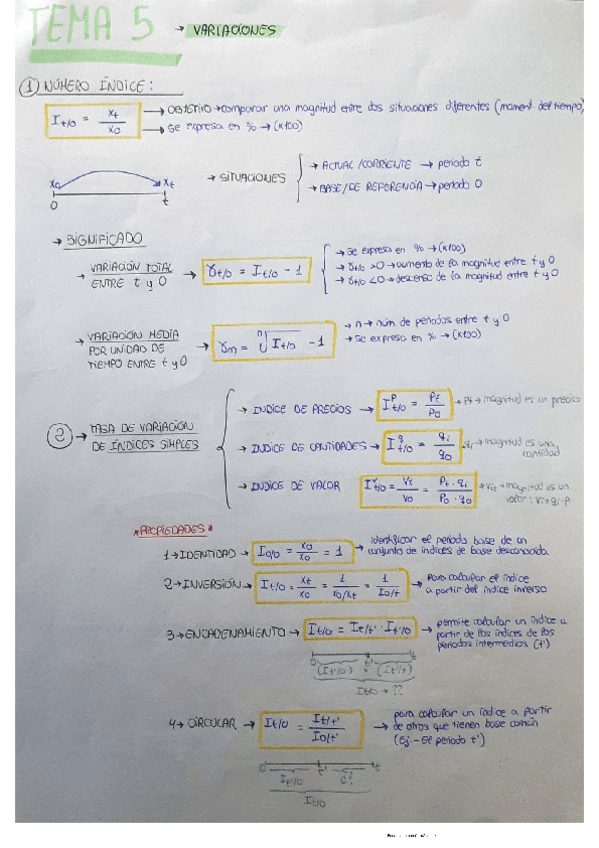 TEMA 5 → VARIACIONES
① NÚMERO ÍNDICE:
I t/0 = xt / x0
→ OBJETIVO → comparar una magnitud entre dos situaciones diferentes (moment. del tiempo)
→ se expresa en % → (x100)
x0 xt
0 t
→ SITUACIONES
→ ACTUAL/CORRIENTE → periodo t
→ BASE/DE REFERENCIA → periodo 0
→ SIGNIFICADO
→ VARIACIÓN TOTAL ENTRE t y 0 → γt/0 = It/0 - 1
→ se expresa en % → (x100)
→ γt/0 >0 → aumento de la magnitud entre t y 0
→ γt/0 <0 → descenso de la magnitud entre t y 0
→ VARIACIÓN MEDIA POR UNIDAD DE TIEMPO ENTRE t y 0 → γm = ⁿ√It/0 - 1
→ n → núm de periodos entre t y 0
→ se expresa en % → (x100)
② → TASA DE VARIACIÓN DE ÍNDICES SIMPLES
→ INDICE DE PRECIOS → I^p t/0 = Pt / P0 → Pt → magnitud es un precio
→ INDICE DE CANTIDADES → I^q t/0 = qi / q0 qi → magnitud es una cantidad
→ INDICE DE VALOR I^v t/0 = Vt / V0 = Pt · qi / P0 · q0 → Vit → magnitud es un valor: Vi = qi · P
*PROPIEDADES*
1 → IDENTIDAD → I0/0 = x0 / x0 = 1 → identificar el periodo base de un conjunto de indices de base desconocida
2 → INVERSIÓN → It/0 = xt / x0 = 1 / x0/xt = 1 / I0/t → Para calcular el índice a partir del indice inverso
3 → ENCADENAMIENTO → It/0 = It/t' · It'/0 → permite calcular un indice a partir de los indices de los periodos intermedios (t')
0 t' t
(It'/0) (It/t')
It/0 → ??
4 → CIRCULAR → It/0 = It/t' / I0/t' → para calcular un indice a partir de otros que tienen base común (Ej.- el periodo t')
0 t' t
It'/0 c?
It/0